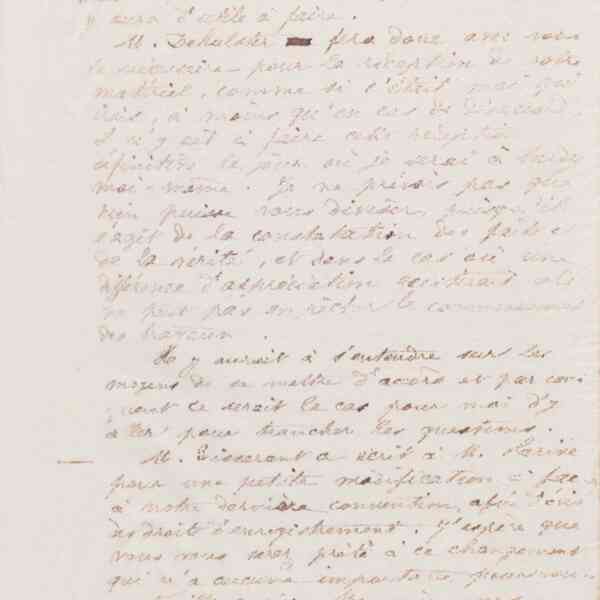 y aura d'utile à faire.
M. Dehulster fera donc avec vous
le nécessaire pour la réception de votre
matériel, comme si c'était moi qui
, à moins qu'en cas de désaccord
il n'y eut à faire cette réception
définitive le jour où je serai à
moi-même. Je ne prévois pas que
rien puisse vous diviser, puisqu'il
s'agit de la constatation des faits et
de la vérité, et dans le cas où une
différence d'appréciation existerait cela
ne peut pas empêcher le commencement
des travaux.
Il y aurait à s'entendre sur les
moyens de se mettre d'accord et par consé
quent ce serait le cas pour moi d'y
aller pour trancher les questions.
M. a écrit à M.
pour une petite modification à faire
à notre dernière convention afin
droit d'enregistrement. J'espère que
vous vous serez prêté à ce changement
qui n'a aucune importance pour